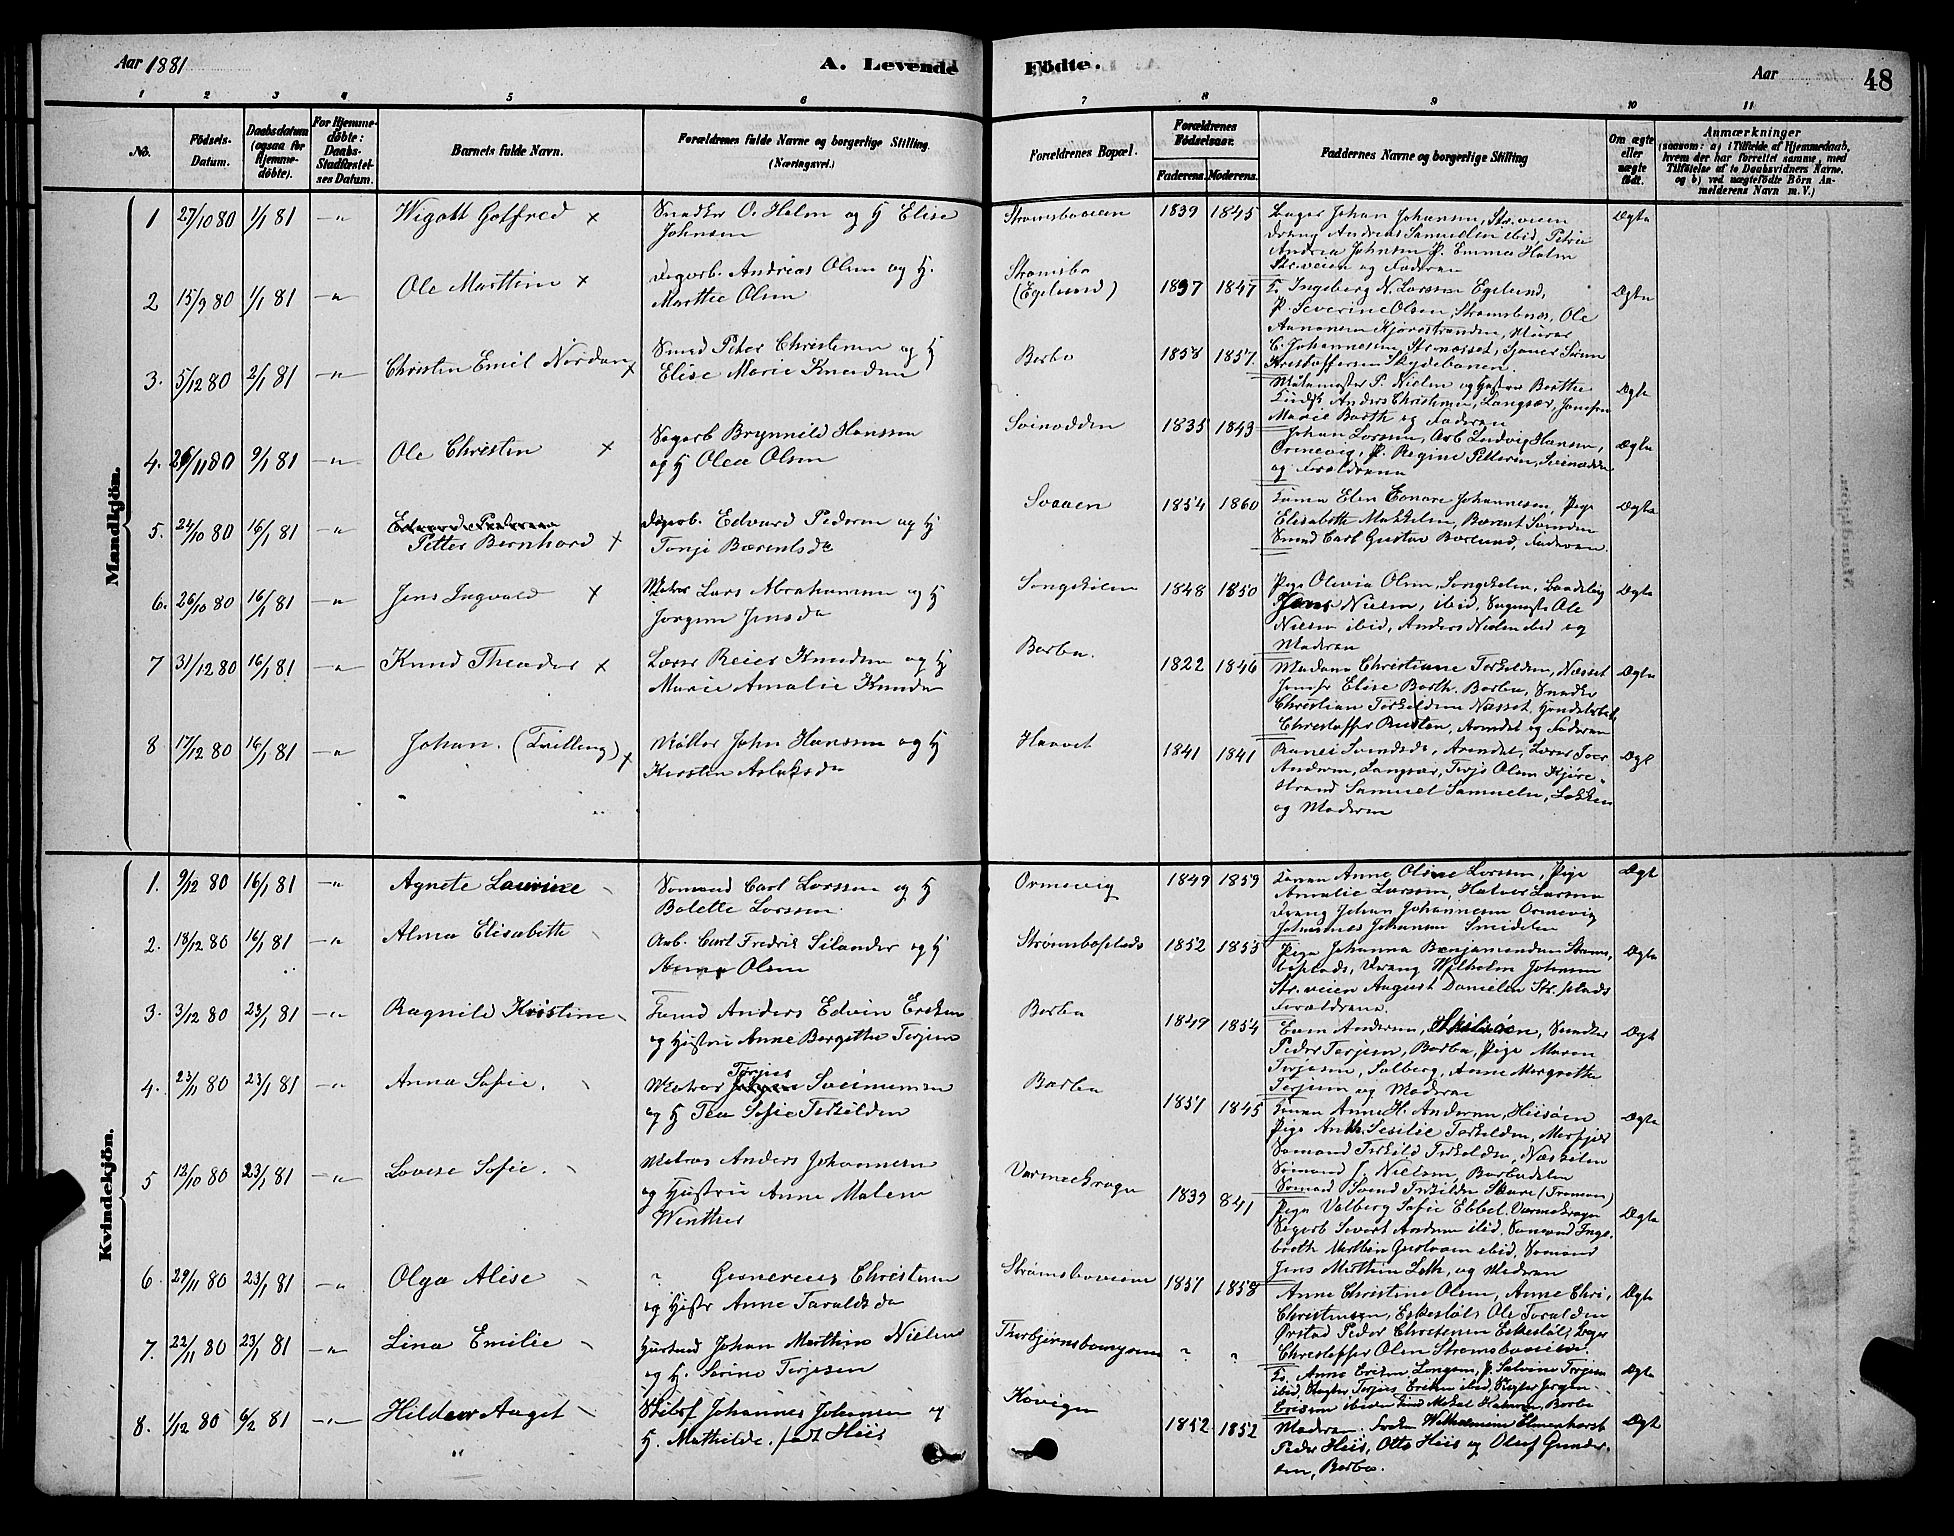 Aar 1881
A. Levende
Födte.
Aar
48
1 2 3 4 5 6 7 8 9 10 11
No.
Födsels-Datum.
Daabsdatum (ogsaa for Hjemmedöbte).
For Hjemmedöbte: Daabs-Stadfæstelses Datum.
Barnets fulde Navn.
Forældrenes fulde Navne og borgerlige Stilling. (Næringsvei.)
Forældrenes Bopæl.
Forældrenes Födselsaar.
Faderens. Moderens.
Faddernes Navne og borgerlige Stilling
Om ægte eller uægte födt.
Anmærkninger
(saasom: a) i Tilfælde af Hjemmedaab,
hvem der har forrettet samme, med
Tilföielse af to Daabsvidners Navne.
og b) ved uægtefödte Börn Anmelderens Navn m. V.)
Mandkjön.
1 27/10 80 1/1 81 -"- Wigatt Gotfred x
Snedker O. Holm og H Elise
Johnsen
Strømsboveien 1839 1845
Johan Johansen, Str.veien
Drang Andreas Samuelsen ibid, Petrie
Andrea Johnsen P. Emma Holm
Str.veien og Faderen
Ægte
2 15/9 80 1/1 81 -"- Ole Marthin x
Dagarb. Andreas Olsen og H.
Marthe Olsen
Strømsbo
(Egelund) 1837 1847
Fr. Ingeborg N. Larssen Egelund,
P. Severine Olsen, Strømsbonæs, Ole
Aanonsen Kjørrestranden, Murer
C. Johannesen, Strømsnæsset, Sjauer Søren
Kristoffersen Skydebanen.
Ægte
3. 5/12 80 2/1 81 -"- Christen Emil Nordan x
Smed Peter Christensen og H
Elise Marie Knudsen
Barbo 1858 1857
Målemester P. Nielsen og Hustru Berthe
Anders Christensen, Langsær, Jomfru
Marie Barth og Faderen
Ægte
4. 26/11 80 9/1 81 -"- Ole Christen x
Dagarb Brynnild Hanssen
og H Olea Olsen
Svinodden 1835 1843
Johan Larssen, Arb Ludvig Hansen,
Ormevig, P. Regine Pettersen, Svinodden
og Forældrene
Ægte
5. 24/10 80 16/1 81 -"- Edvard Pedersen
Petter Bernhard x
Dagarb. Edvard Pedersen og H
Tonje Bærentsdr
Svaaen 1854 1860
Konen Elen Johannesen, Pige
Elisabeth Mikkelsen, Bærent Svendsen
Smed Carl Gustav Barlund, Faderen.
Ægte
6. 26/10 80 16/1 81 -"- Jens Ingvald x
Matros Lars Abrahamsen og H
Jørgine Jensdr
Songekilen 1848 1850
Pige Olivia Olsen, Songekilen,
Jens Nielsen, ibid, Ole
Nielsen ibid, Anders Nielsen ibid og
Moderen
Ægte
7 31/12 80 16/1 81 -"- Knud Theodor x
Lærer Reier Knudsen og H
Marie Amalie Knudsen
Barbo. 1822 1846
Madam Christiane Terkelsen, Næsset
Jomfr Elise Barth. Barbo, Snedker
Christian Terkildsen Næsset,
Christoffer Arendal og Faderen
Ægte
8 17/12 80 16/1 81 -"- Johan. (Tvilling) x
Møller John Hanssen og H
Kirsten Aslaksdr
Haavet 1841 1841
Svendsdr, Arendal, Tver
Andersen, Langsær, Terje Olsen Kjørrestrand
Samuel Samuelsen, Løkken
og Moderen
Ægt
Kvindekjön.
1. 9/12 80 16/1 81 -"- Agnete Laurine
Sømand Carl Larssen og H
Bolette Larssen.
Ormevig 1849 1859
Konen Anne Oline Larssen, Pige
Amalie Larssen, Halvor Larsen
Drang Johan Johannesen Ormevig
Johannes Johansen Smidalen
Ægt
2. 18/12 80 16/1 81 -"- Alma Elisabeth
Arb. Carl Fredrik Silander og H
Anna Olsen
Strømsboplads 1852 1853
Pige Johanna Benjaminsen Strømsboplads,
Drang Wilhelm Johnsen
Str.veien August Danielsen Str.plads
Forældrene.
Ægte
3. 3/12 80 23/1 81 -"- Ragnild Kristine
Tømd Anders Edvin Eriksen
og Hustru Anne Bergithe Terjesen
Barbo 1849 1854
Even Andersen, Snedker
Peder Terjesen, Barbo, Pige Maren
Terjesen, Solberg, Anne Margrethe
Terjesen og Moderen
Ægt
4. 23/11 80 23/1 81 -"- Anna Sofie.
Matros Terjus Sveinunsen
og H Tea Sofie Terkildsen
Barbo 1857 1845
Konen Anne H. Andersen, Hisøen
Pige Anth. Sesilie Terkildsen,
Sømand Terkild Terkildsen, Næskilen
Sømand J. Nielsen, Barbodalen
Sømand Svend Terkildsen Skare (Tromøen)
Ægte
5 12/10 80 23/1 81 -"- Lovise Sofie.
Matros Anders Johannesen
og Hustru Anne Malene
Winther
Varmekrogen 1839 841
Pige Valborg Sofie Ebbel, Varmekrogen
Sivert Andersen ibid, Sømand Ingebreth
Mathias Gustavsen ibid, Sømand
Jens Mathias Leth, og Moderen
Ægte
6 29/11 80 23/1 81 -"- Olga Alise
" Gunerius Christensen
og Hustr Anne Taraldsdr
Strømsboveien 1857 1858
Anne Christine Olsen, Anne Chri,
Christensen, Eskestøl, Ole Taraldsen
Ørstad Peder Christensen Eskestøl, Bager
Christoffer Olsen Strømsboveien.
Ægte
7. 22/11 80 23/1 81 -"- Lina Emilie
Husmd Johan Marthinus Nielsen
og H. Serine Terjesen
Thorbjørnsboengene " "
Fr. Anne Eriksen Longum, P. Salvine Terjesen
ibid, Terjus Eriksen ibid, Jørgen
Eriksen ibid Mikal Halvorsen, Barbo
Moderen.
Ægte
8. 1/12 80 6/2 81 -"- Hildur Aaget
Skibsf Johannes Johansen og
H. Mathilde. født Hiis
Kovigen 1852 1852
Frøken Wilhelmine Elmenhorst
Peder Hiis, Otto Hiis og Oluf Gundersen,
Barbo.
Ægt